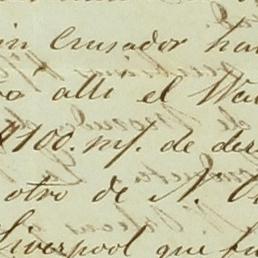 in Crusador ha
o' alli el Wa
100. m/. de de
otro de N. O
Liverpool que fu